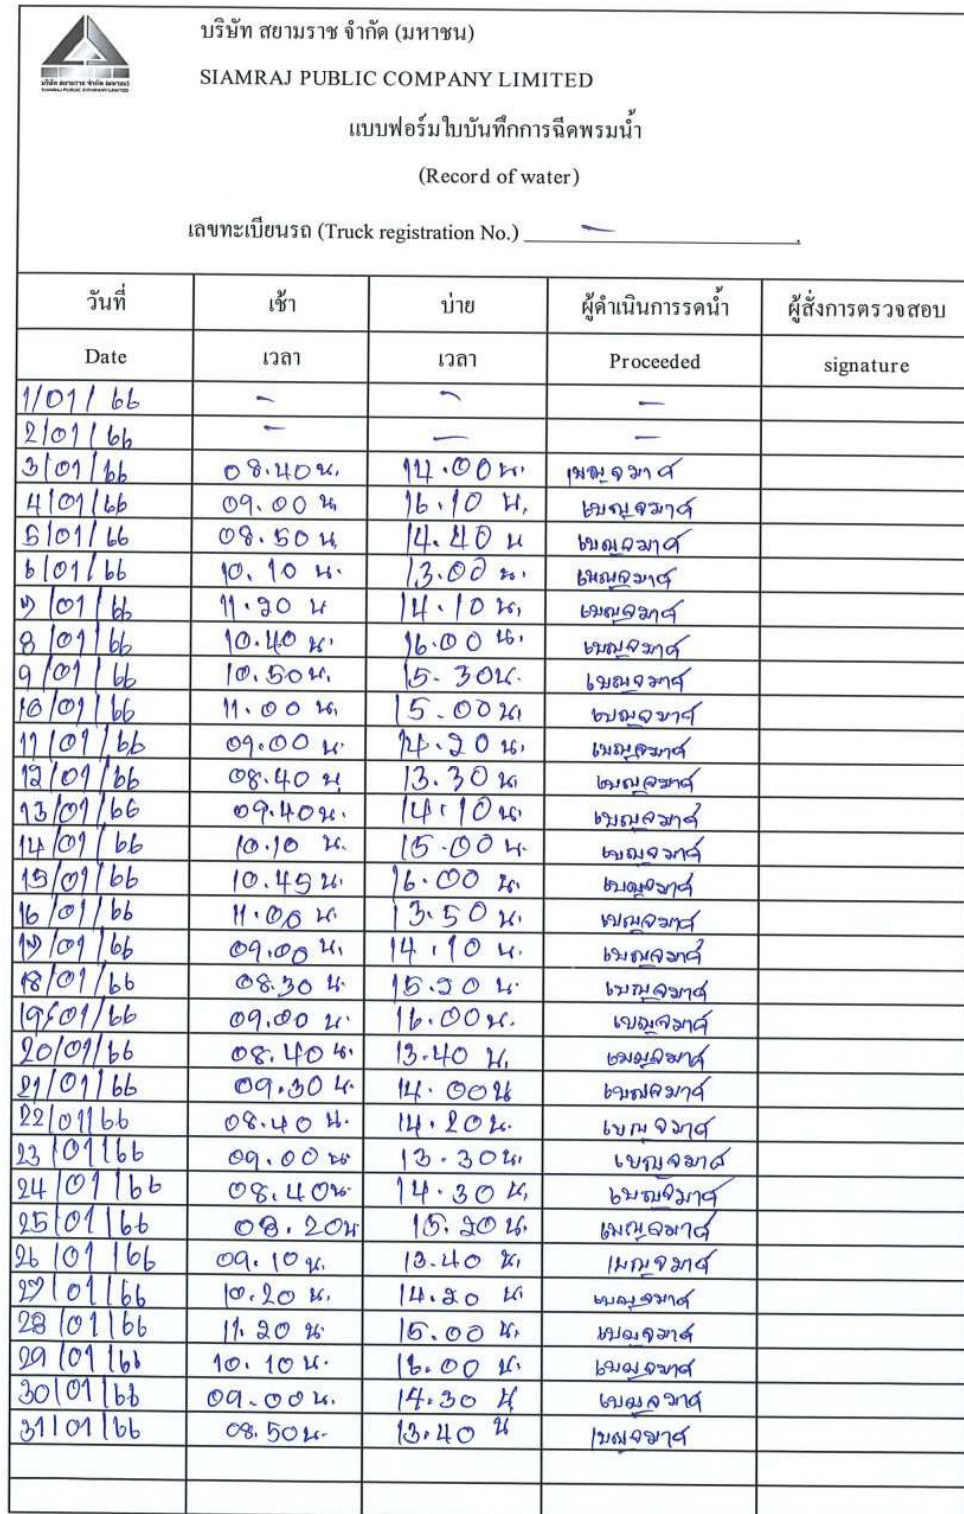 บริษัท สยามราช จำกัด (มหาชน)
บริษัท สยามราช จำกัด (มหาชน)
SIAMRAJ PUBLIC COMPANY LIMITED
SIAMRAJ PUBLIC COMPANY LIMITED
แบบฟอร์มใบบันทึกการฉีดพรมน้ำ
(Record of water)
เลขทะเบียนรถ (Truck registration No.) -
วันที่ เช้า บ่าย ผู้ดำเนินการรดน้ำ ผู้สั่งการตรวจสอบ
Date เวลา เวลา Proceeded signature
1/01/66 - - -
2/01/66 - - -
3/01/66 08.40 น. 14.00 น. เบญจมาศ
4/01/66 09.00 น. 16.10 น. เบญจมาศ
5/01/66 08.50 น. 14.40 น เบญจมาศ
6/01/66 10.10 น. 13.00 น. เบญจมาศ
7/01/66 11.20 น 14.10 น. เบญจมาศ
8/01/66 10.40 น. 16.00 น. เบญจมาศ
9/01/66 10.50 น. 15.30 น. เบญจมาศ
10/01/66 11.00 น. 15.00 น. เบญจมาศ
11/01/66 09.00 น. 14.20 น. เบญจมาศ
12/01/66 08.40 น 13.30 น. เบญจมาศ
13/01/66 09.40 น. 14.10 น. เบญจมาศ
14/01/66 10.10 น. 15.00 น. เบญจมาศ
15/01/66 10.45 น. 16.00 น. เบญจมาศ
16/01/66 11.00 น. 13.50 น. เบญจมาศ
17/01/66 09.00 น. 14.10 น. เบญจมาศ
18/01/66 08.30 น. 15.20 น. เบญจมาศ
19/01/66 09.00 น. 16.00 น. เบญจมาศ
20/01/66 08.40 น. 13.40 น. เบญจมาศ
21/01/66 09.30 น. 14.00 น เบญจมาศ
22/01/66 08.40 น. 14.20 น. เบญจมาศ
23/01/66 09.00 น. 13.30 น. เบญจมาศ
24/01/66 08.40 น. 14.30 น. เบญจมาศ
25/01/66 08.20 น 15.20 น. เบญจมาศ
26/01/66 09.10 น. 13.40 น. เบญจมาศ
27/01/66 10.20 น. 14.20 น. เบญจมาศ
28/01/66 11.20 น. 15.00 น. เบญจมาศ
29/01/66 10.10 น. 16.00 น. เบญจมาศ
30/01/66 09.00 น. 14.30 น เบญจมาศ
31/01/66 08.50 น. 13.40 น เบญจมาศ